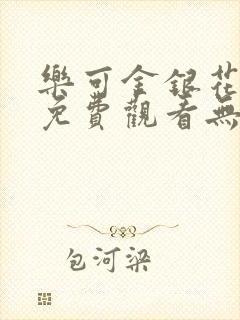 樂可金銀花
免費觀看無
包河梁